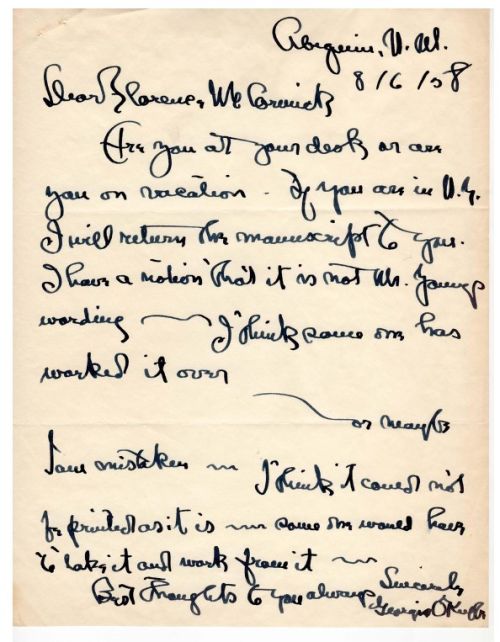 Abiquiu, N. M.
8/6/58
Dear Florence McCormick
Are you at your desk or are
you on vacation - If you are in N.Y.
I will return the manuscript to you.
I have a notion that it is not Mr. Youngs
wording — I think some one has
worked it over
— or maybe
I am mistaken — I think it could not
be printed as it is — some one would have
to take it and work from it —
Best thoughts to you always Sincerely
Georgia O'Keeffe